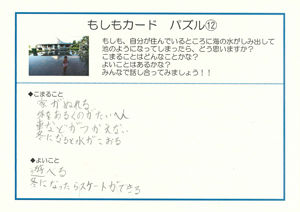 もしもカード パズル⑫
もしも、自分が住んでいるところに海の水がしみ出して
池のようになってしまったら、どう思いますか？
こまることはどんなことかな？
よいことはあるかな？
みんなで話し合ってみましょう！！
◆こまること
家がぬれる
体をあるくのがたいへん
車などがつかえない
冬になると水がこおる
◆よいこと
遊べる
冬になったらスケートができる